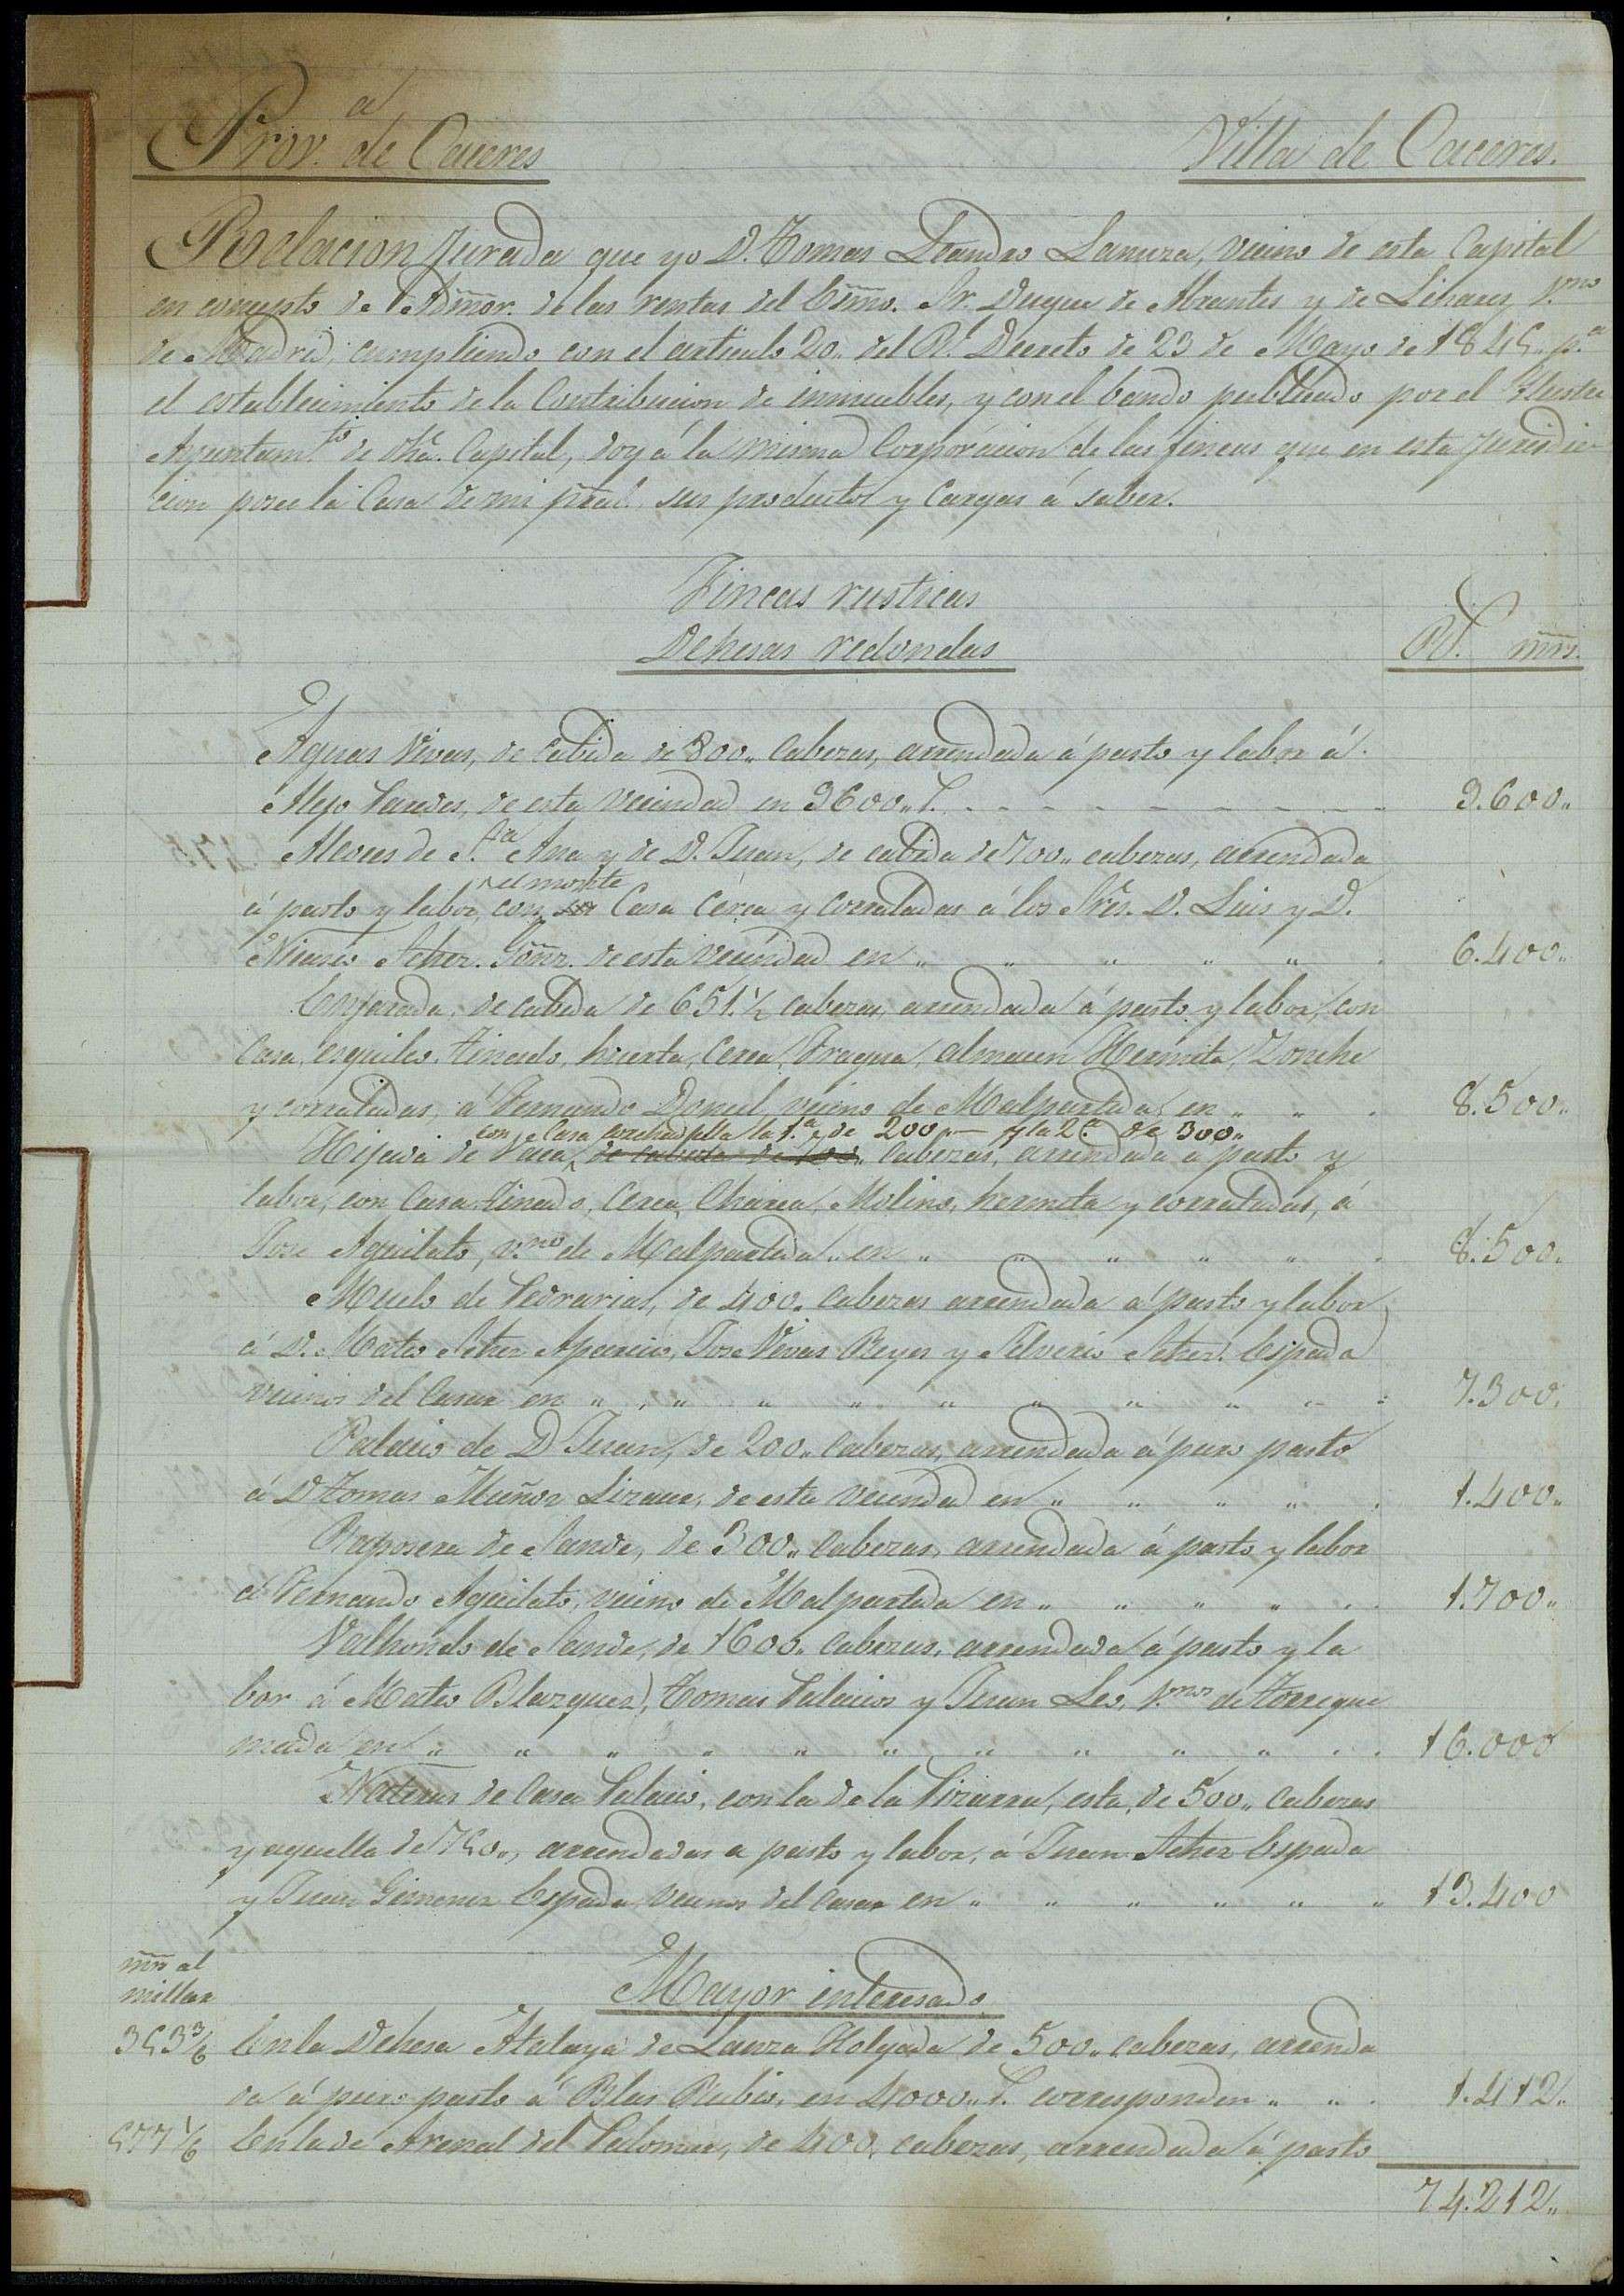 Prov.ª de Caceres
Villa de Caceres.
Relacion Jurada que yo D. Tomas Leandro Lanuza, vecino de esta Capital
en concepto de Admōr. de las rentas del Ecm̃o. Sr. Duque de Abrantes y de Linares, v.no
de Madrid, cumpliendo con el articulo 20,, del Rl. Decreto de 23 de Mayo de 1845,, p.ª
el establecimiento de la Contribucion de inmuebles, y con el bando publicado por el Ilustre
Ayuntam.to de dhã. Capital, doy á la misma Corporacion de las fincas que en esta jurisdic-
cion posee la Casa de mi prāl. sus productos y cargas á saber.
Fincas rusticas
Dehesas redondas
Rs. mrs.
Aguas Vivas, de cabida de 800,, cabezas, arrendada á pasto y labor á
Alejo Paredes, de esta vecindad en 9600,, r. 9.600,,
Alcores de S.ta Ana y de D. Juan, de cabida de 700,, cabezas, arrendada
el monte
á pasto y labor, con Casa cerca y corraladas á los Sres. D. Luis y D.
Schez. de esta vecindad en ,, ,, ,, ,, ,, 6.400,,
Enjarada, de cabida de 651.½ cabezas, arrendada á pasto y labor, con
Casa, esquileo, tinado, huerta, cerca, fragua, almacen Hermita, Zonche
y corraladas, á Fernando Doncel, vecino de Malpartida, en ,, ,, 8.500,,
con Casa la 1.ª de 200,,— y la 2.ª de 300,,
Hijada de Vaca, de cabida de 700,, cabezas, arrendada á pasto y
labor, con Casa tinado, Cerca, Charca, Molino, hermita y corraladas, á
Jose Aguilato, v.no de Malpartida,, en ,, ,, ,, ,, ,, 8.500,
Muelo de Pedrarias, de 400,, cabezas arrendada á pasto y labor
á D. Mateo Schez Aparicio, Jose Vivas Reyes y Silverio Schez. Espada
vecinos del Casar en ,, ,, ,, ,, ,, ,, ,, ,, ,, 7.300,
Palacio de D Juan, de 200,, cabezas, arrendada á puro pasto
á D Tomas Muñoz Lizaur, de esta vecindad en ,, ,, ,, ,, 1.400,,
Raposera de Sande, de 300,, cabezas, arrendada á pasto y labor
á Fernando Aguilato, vecino de Malpartida en ,, ,, ,, ,, 1.700,,
Valhondo de Sande, de 1600,, cabezas, arrendada á pasto y la
bor á Mateo Blazquez, Tomas Palacios y Juan Leo, v.nos de Torreque
mada en ,, ,, ,, ,, ,, ,, ,, ,, ,, ,, 16.000
Nateras de Casa Palacio, con la de la Pizarra, esta de 500,, cabezas
y aquella de 750,, arrendadas a pasto y labor, á Juan Schez Espada
y Juan Gimenez Espada vecinos del Casar en ,, ,, ,, ,, ,, ,, 13.400
mr̃s al
millar
Mayor interesado
353 3/6 En la Dehesa Atalaya de Laura Holgada de 500,, cabezas, arrenda
da á puro pasto á Blas Rubio, en 4000,, r. corresponden ,, ,, 1.412,,
577 1/6 En la de Arenal del Palomar, de 400, cabezas, arrendada á pasto
74.212,,